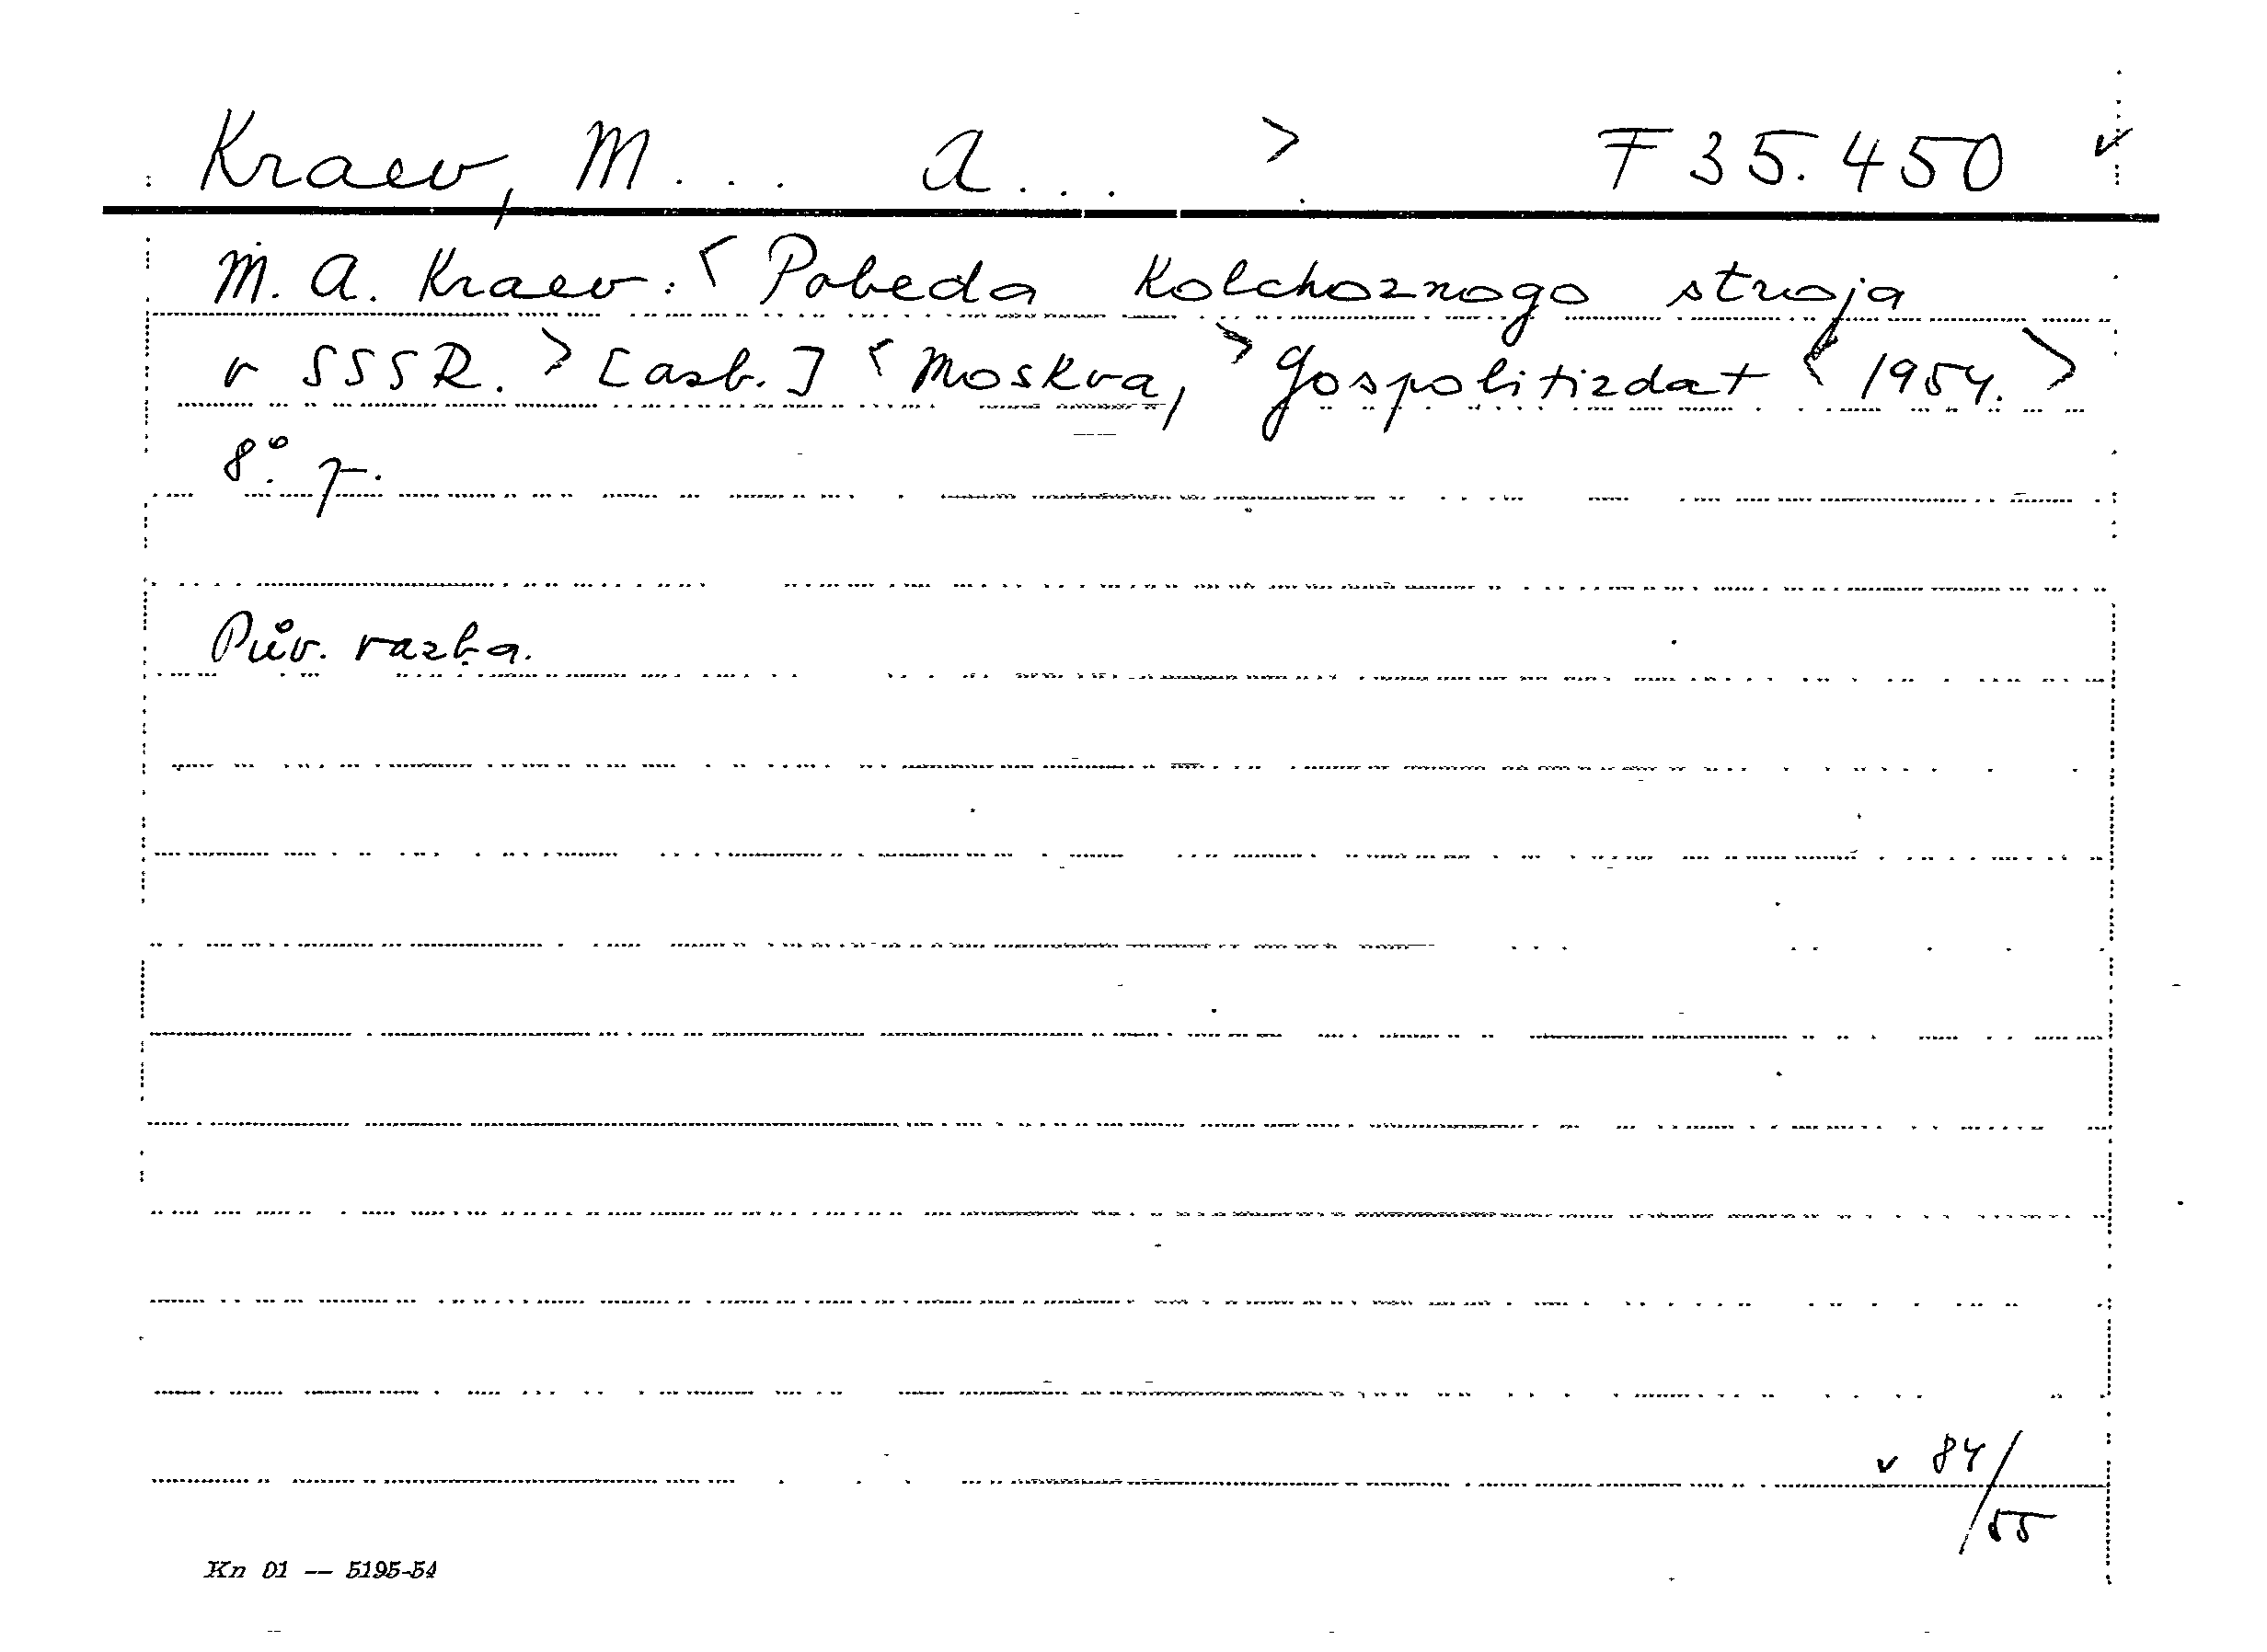 Kraev, M... A... > F 35.450 v
M. A. Kraev: < Pobeda kolchoznogo stroja
v SSSR. > [azb.] < Moskva, > Gospolitizdat < 1954. >
8°.
Pův. vazba.
v 84/55
Kn 01 — 5195-54